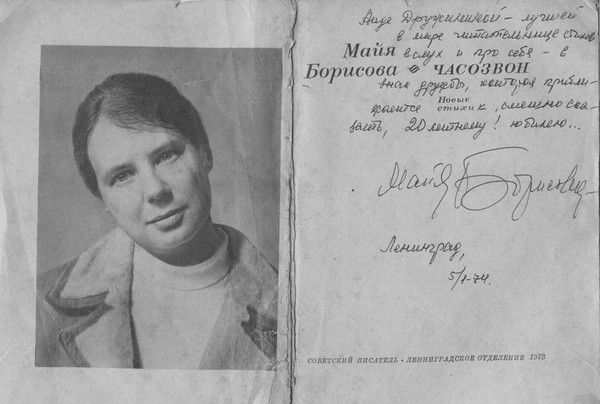 Аиде Дружининой – лучшей
в мире читательнице стихов
вслух и про себя – в
Майя
Борисова ЧАСОЗВОН
знак дружбы, которая прибли-
Новые
стихи
жается к, смешно ска-
зать, 20летнему! юбилею...
Майя Борисова
Ленинград,
5/I-74.
СОВЕТСКИЙ ПИСАТЕЛЬ · ЛЕНИНГРАДСКОЕ ОТДЕЛЕНИЕ 1973